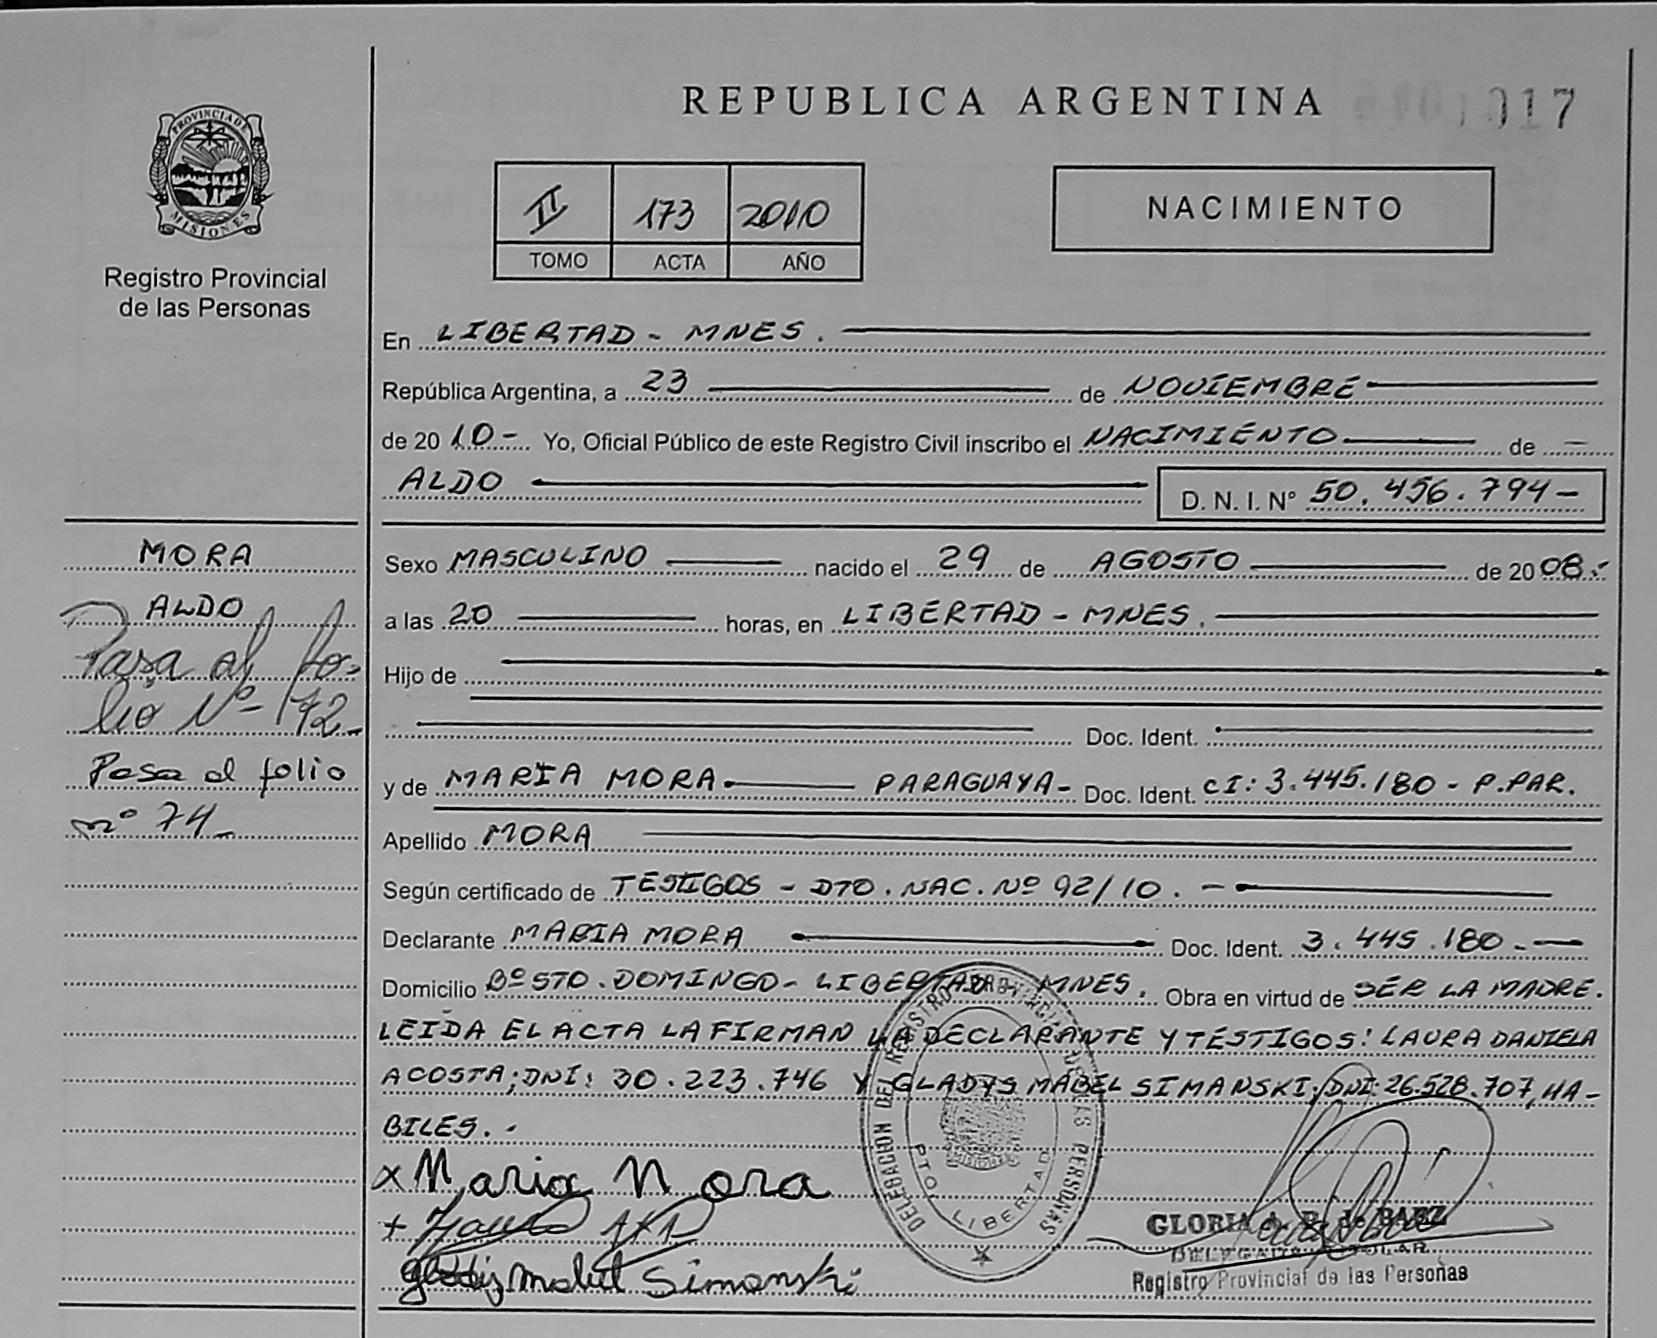 REPUBLICA ARGENTINA
017
PROVINCIA DE
MISIONES
Registro Provincial
de las Personas
II 173 2010
TOMO ACTA AÑO
NACIMIENTO
En LIBERTAD - MNES.
República Argentina, a 23 de NOVIEMBRE
de 20 10- Yo, Oficial Público de este Registro Civil inscribo el NACIMIENTO de
ALDO D. N. I. N° 50.456.794-
MORA
ALDO
Pasa al fo-
lio Nº 172-
Pasa al folio
nº 74-
Sexo MASCULINO nacido el 29 de AGOSTO de 20 08.-
a las 20 horas, en LIBERTAD - MNES.
Hijo de
Doc. Ident.
y de MARIA MORA PARAGUAYA- Doc. Ident. CI: 3.445.180 - P.PAR.
Apellido MORA
Según certificado de TESTIGOS - DTO. NAC. Nº 92/10. -
Declarante MARIA MORA Doc. Ident. 3.445.180.-
Domicilio Bº STO. DOMINGO - LIBERTAD - MNES. Obra en virtud de SER LA MADRE.
LEIDA EL ACTA LA FIRMAN LA DECLARANTE Y TESTIGOS: LAURA DANIELA
ACOSTA; DNI: 30.223.746 Y GLADYS MABEL SIMANSKI; DNI: 26.528.707, HA-
BILES. -
x Maria Mora
Simanski
DELEGACION DEL REGISTRO PROVINCIAL DE LAS PERSONAS
PTO. LIBERTAD
GLORIA A. R. de BAEZ
DELEGADA TITULAR
Registro Provincial de las Personas